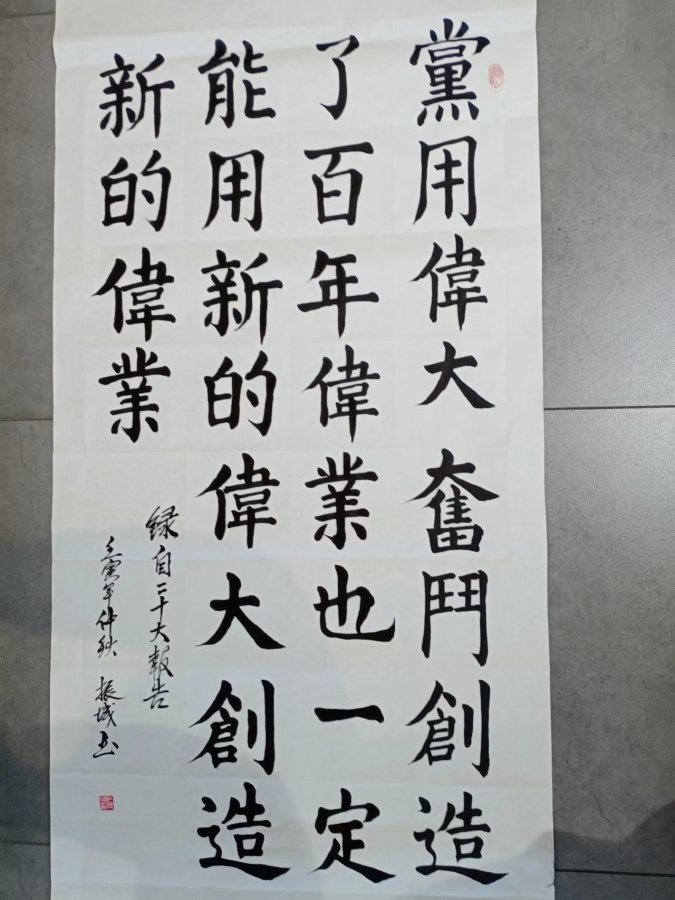 黨用偉大奮鬥創造
了百年偉業也一定
能用新的偉大創造
新的偉業
緑自二十大報告
壬寅年仲秋 振城书